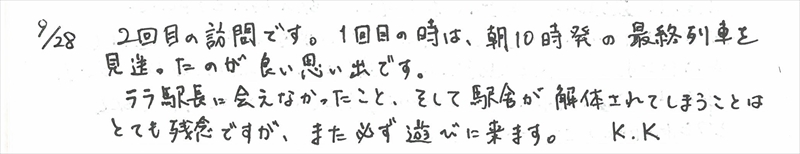 9/28 2回目の訪問です。1回目の時は、朝10時発の最終列車を
見送ったのが良い思い出です。
ララ駅長に会えなかったこと、そして駅舎が解体されてしまうことは
とても残念ですが、また必ず遊びに来ます。 K.K